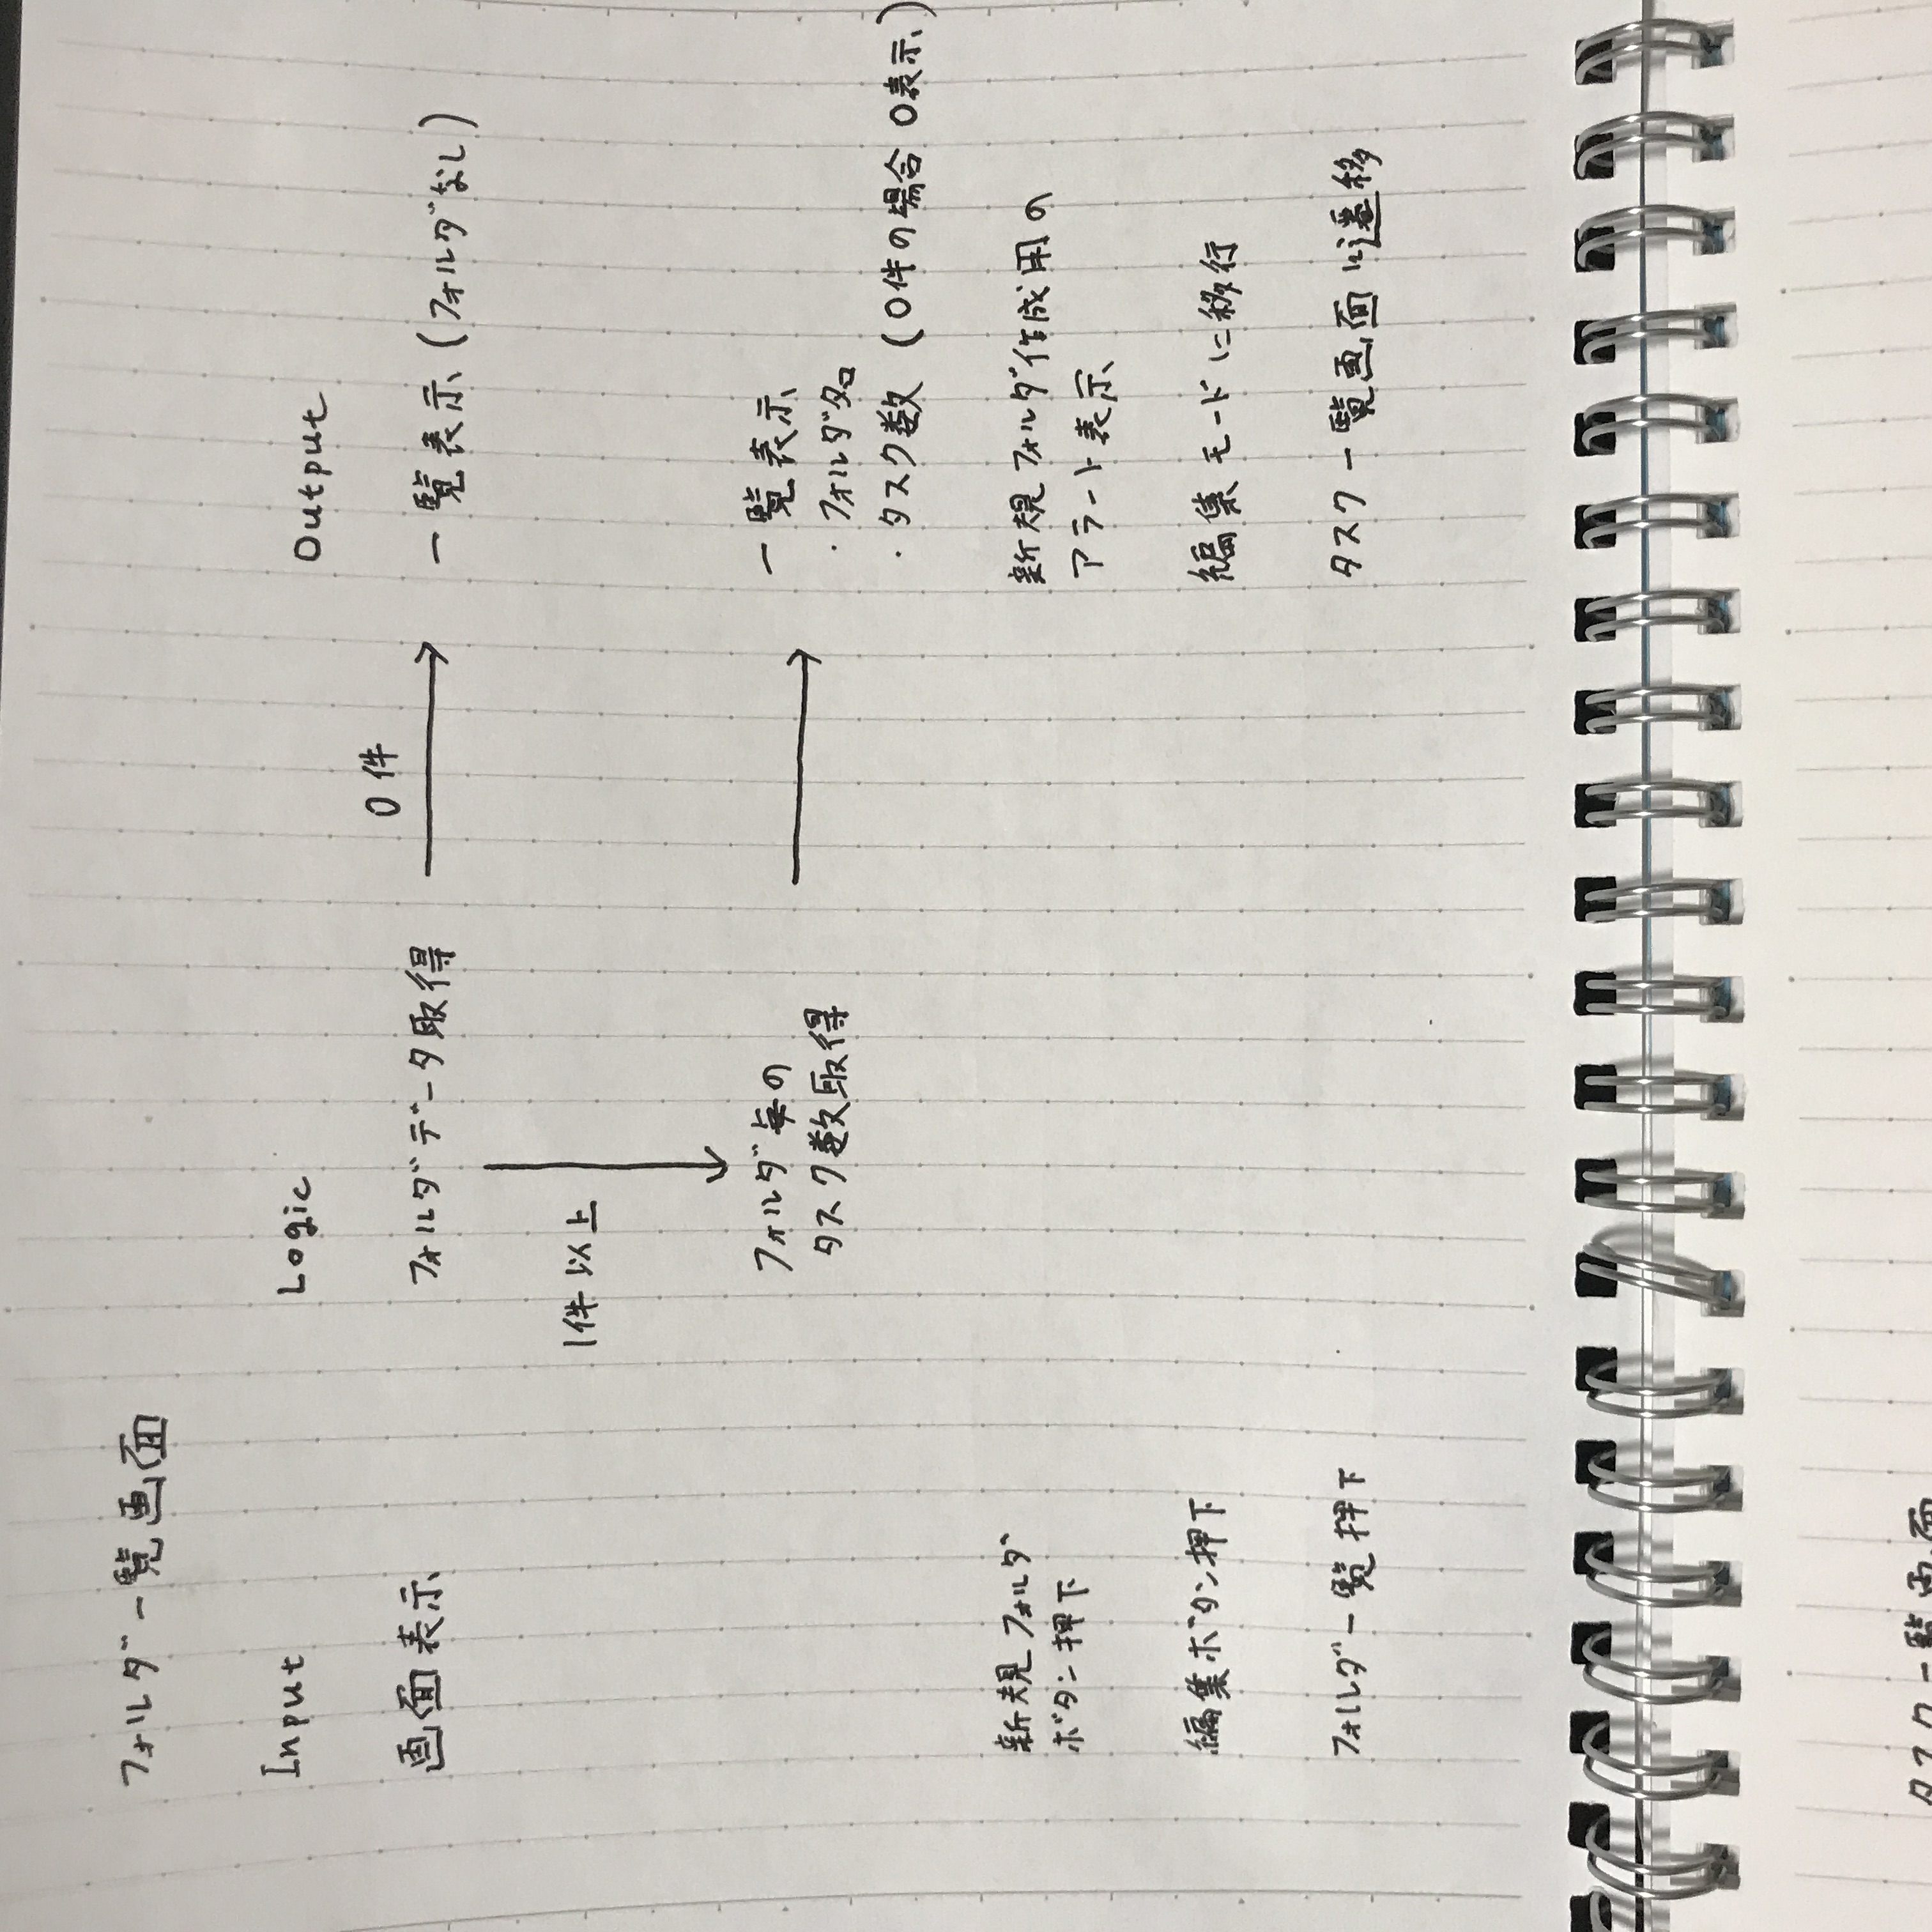 フォルダ一覧画面
Input
Logic
Output
画面表示
フォルダデータ取得
0件
一覧表示(フォルダなし)
1件以上
フォルダ毎の
タスク数取得
一覧表示
・フォルダ名
・タスク数(0件の場合0表示)
新規フォルダ
ボタン押下
新規フォルダ作成用の
アラート表示
編集ボタン押下
編集モードに移行
フォルダ一覧押下
タスク一覧画面に遷移
タスク一覧画面